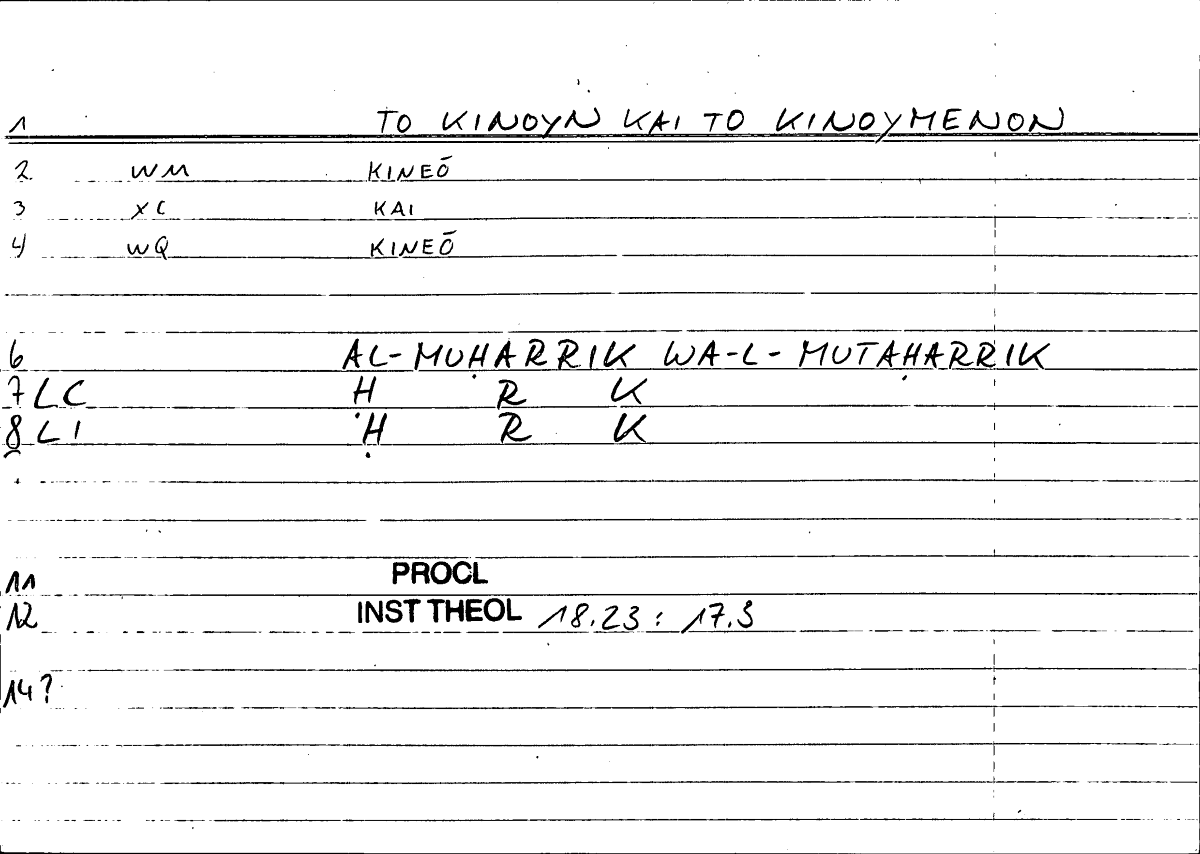 1 ΤΟ ΚΙΝΟΥΝ ΚΑΙ ΤΟ ΚΙΝΟΥΜΕΝΟΝ
2 WM KINEŌ
3 XC KAI
4 WQ KINEŌ
6 AL-MUḤARRIK WA-L-MUTAḤARRIK
7 LC H R K
8 LI Ḥ R K
11 PROCL
12 INST THEOL 18.23 : 17.3
14?